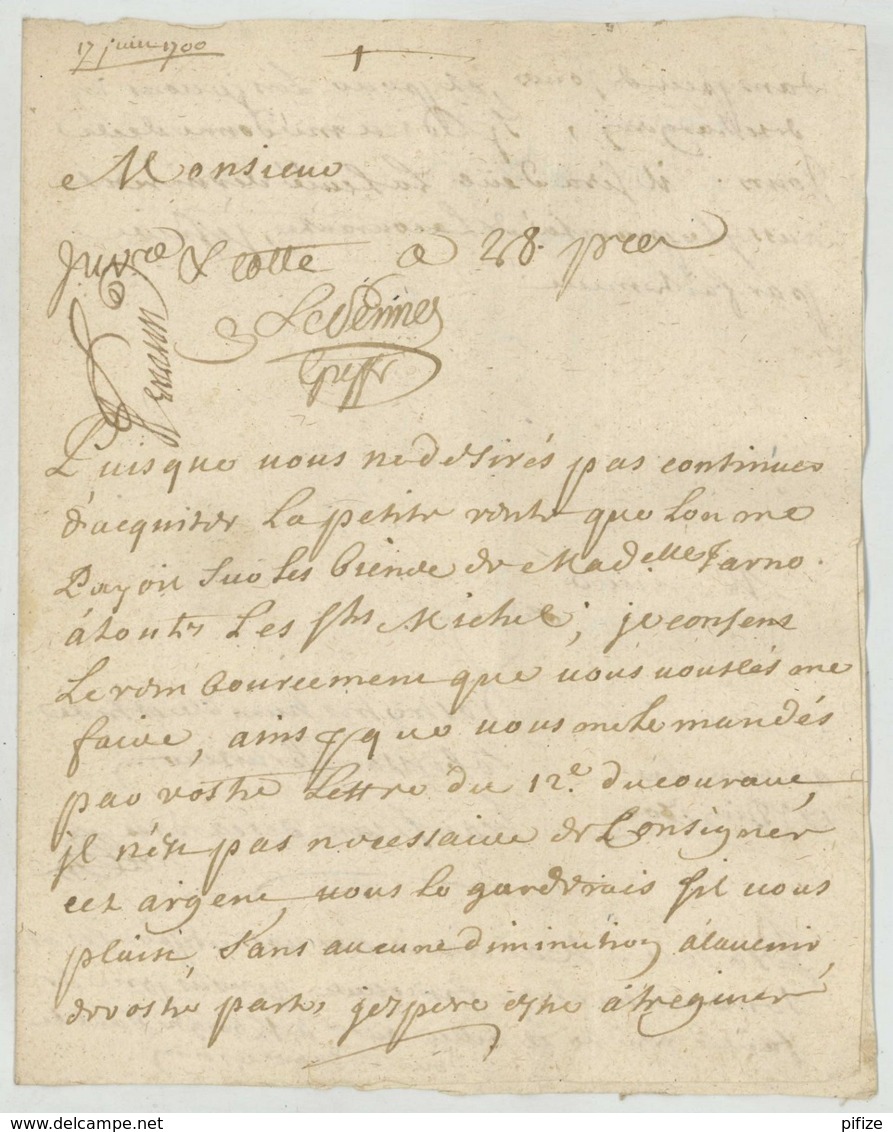 17 juin 1700
1
Monsieur
Inv.re & cotte a 28. pces
Le
Greffr
Puisque vous ne desirés pas continuer
d'acquiter la petite rente que lon me
Payoit sur les biens de Madelle Jarno
à toutes les fhs Michel; je consens
le rembourcement que vous voulés me
faire, ainsy que vous me le mandés
par vostre lettre du 12e. du courant,
jl n'est pas necessaire de consigner
cet argent, vous le garderais s'il vous
plaist, sans aucune diminution à lavenir
de vostre part, jespere estre à treguier
delcampe.net
pifize